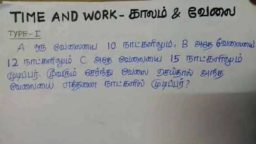 TIME AND WORK - காலம் & வேலை
TYPE-I
A ஒரு வேலையை 10 நாட்களிலும், B அதே வேலையை
12 நாட்களிலும் C அதே வேலையை 15 நாட்களிலும்
முடிப்பர். மூவரும் சேர்ந்து வேலை செய்தால் அந்த
வேலையை எத்தனை நாட்களில் முடிப்பர்?